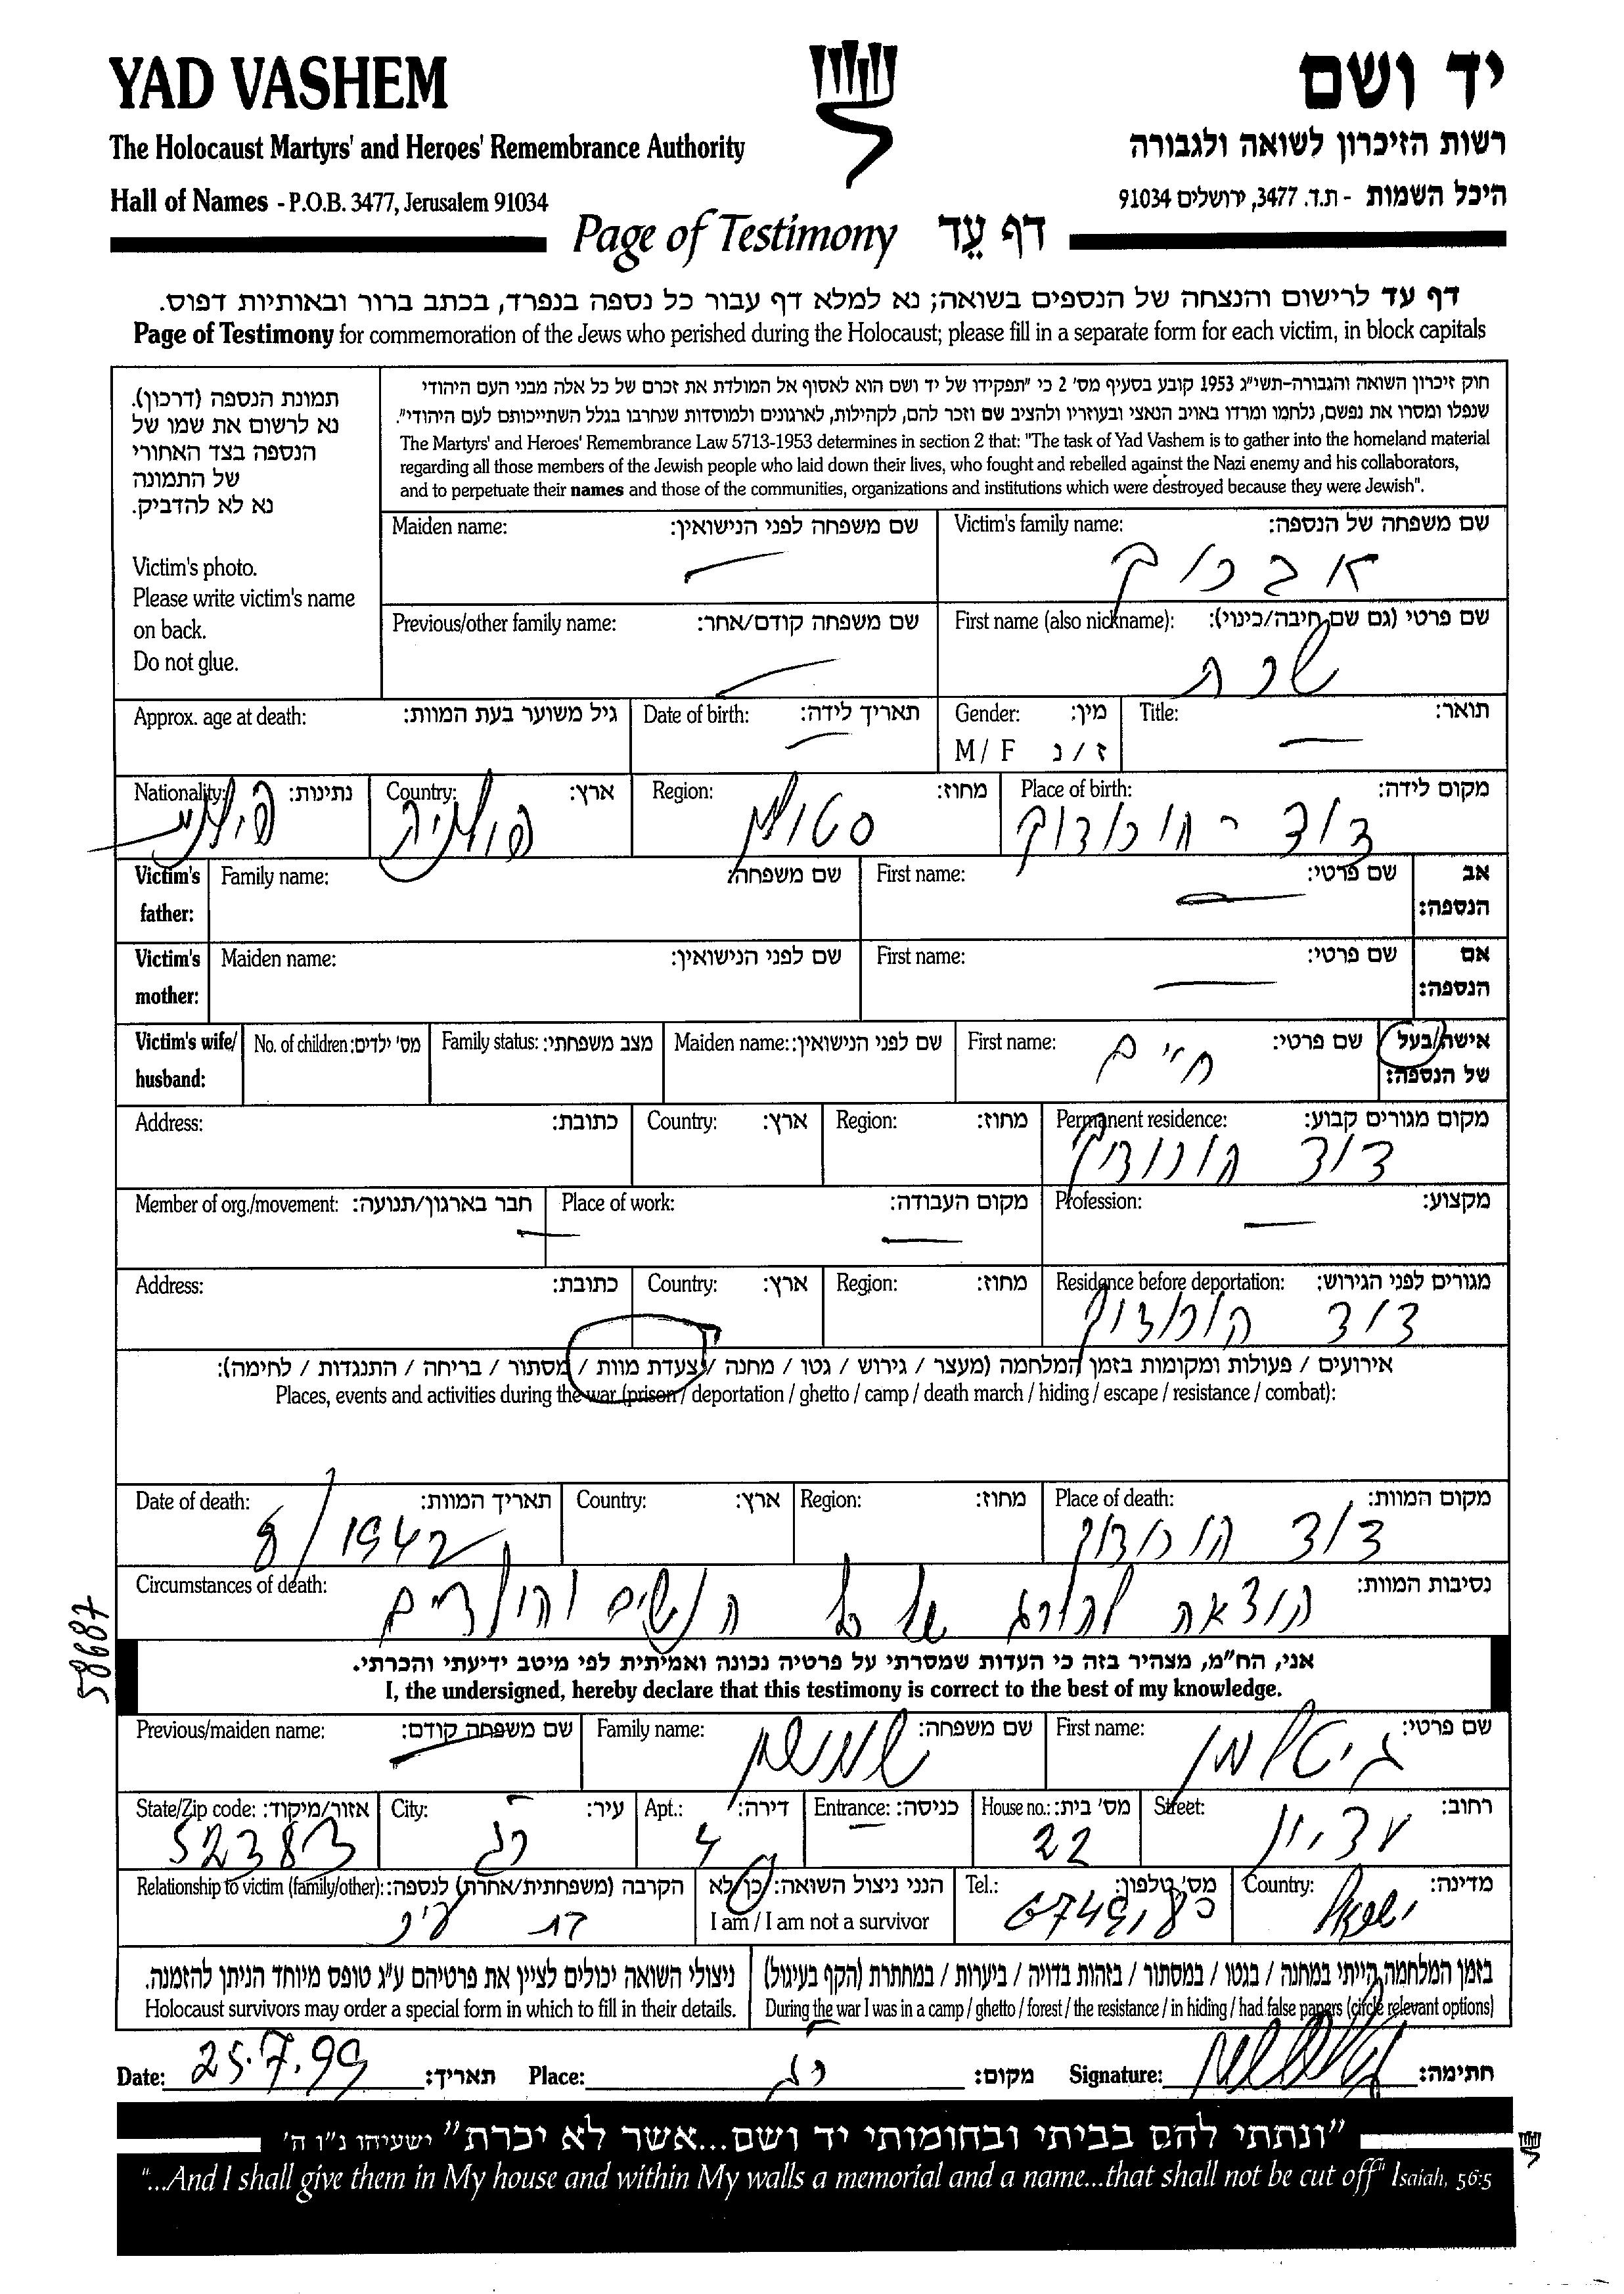 YAD VASHEM
יד ושם
The Holocaust Martyrs' and Heroes' Remembrance Authority
רשות הזיכרון לשואה ולגבורה
Hall of Names - P.O.B. 3477, Jerusalem 91034
היכל השמות - ת.ד. 3477, ירושלים 91034
Page of Testimony דף עֵד
דף עד לרישום והנצחה של הנספים בשואה; נא למלא דף עבור כל נספה בנפרד, בכתב ברור ובאותיות דפוס.
Page of Testimony for commemoration of the Jews who perished during the Holocaust; please fill in a separate form for each victim, in block capitals
תמונת הנספה (דרכון).
נא לרשום את שמו של
הנספה בצד האחורי
של התמונה
נא לא להדביק.
Victim's photo.
Please write victim's name
on back.
Do not glue.
חוק זיכרון השואה והגבורה-תשי"ג 1953 קובע בסעיף מס' 2 כי "תפקידו של יד ושם הוא לאסוף אל המולדת את זכרם של כל אלה מבני העם היהודי
שנפלו ומסרו את נפשם, נלחמו ומרדו באויב הנאצי ובעוזריו ולהציב שם וזכר להם, לקהילות, לארגונים ולמוסדות שנחרבו בגלל השתייכותם לעם היהודי".
The Martyrs' and Heroes' Remembrance Law 5713-1953 determines in section 2 that: "The task of Yad Vashem is to gather into the homeland material
regarding all those members of the Jewish people who laid down their lives, who fought and rebelled against the Nazi enemy and his collaborators,
and to perpetuate their names and those of the communities, organizations and institutions which were destroyed because they were Jewish".
Victim's family name: שם משפחה של הנספה:
אברוך
Maiden name: שם משפחה לפני הנישואין:
First name (also nickname): שם פרטי (גם שם חיבה/כינוי):
שרה
Previous/other family name: שם משפחה קודם/אחר:
Title: תואר:
Gender: מין:
M / F ז / נ
Date of birth: תאריך לידה:
Approx. age at death: גיל משוער בעת המוות:
Place of birth: מקום לידה:
דוד - הורודוק
Region: מחוז:
סטולין
Country: ארץ:
פולניה
Nationality: נתינות:
פולנית
Victim's father: אב הנספה:
First name: שם פרטי:
Family name: שם משפחה:
Victim's mother: אם הנספה:
First name: שם פרטי:
Maiden name: שם לפני הנישואין:
Victim's wife/ husband: אישה/בעל של הנספה:
First name: שם פרטי:
חיים
Maiden name: שם לפני הנישואין:
Family status: מצב משפחתי:
No. of children: מס' ילדים:
Permanent residence: מקום מגורים קבוע:
דוד הורודוק
Region: מחוז:
Country: ארץ:
Address: כתובת:
Profession: מקצוע:
Place of work: מקום העבודה:
Member of org./movement: חבר בארגון/תנועה:
Residence before deportation: מגורים לפני הגירוש:
דוד הורודוק
Region: מחוז:
Country: ארץ:
Address: כתובת:
אירועים / פעולות ומקומות בזמן המלחמה (מעצר / גירוש / גטו / מחנה / צעדת מוות / מסתור / בריחה / התנגדות / לחימה):
Places, events and activities during the war (prison / deportation / ghetto / camp / death march / hiding / escape / resistance / combat):
Place of death: מקום המוות:
דוד הורודוק
Region: מחוז:
Country: ארץ:
Date of death: תאריך המוות:
8/1942
Circumstances of death: נסיבות המוות:
הוצאה להורג של כל הנשים והילדים
58687
אני, הח"מ, מצהיר בזה כי העדות שמסרתי על פרטיה נכונה ואמיתית לפי מיטב ידיעתי והכרתי.
I, the undersigned, hereby declare that this testimony is correct to the best of my knowledge.
First name: שם פרטי:
Family name: שם משפחה:
Previous/maiden name: שם משפחה קודם:
Street: רחוב:
House no.: מס' בית:
22
Entrance: כניסה:
Apt.: דירה:
4
City: עיר:
רג
State/Zip code: אזור/מיקוד:
52383
Country: מדינה:
ישראל
Tel.: מס' טלפון:
הנני ניצול השואה: כן/לא
I am / I am not a survivor
Relationship to victim (family/other): הקרבה (משפחתית/אחרת) לנספה:
בת עיר
בזמן המלחמה הייתי במחנה / בגטו / במסתור / בזהות בדויה / ביערות / במחתרת (הקף בעיגול)
During the war I was in a camp / ghetto / forest / the resistance / in hiding / had false papers (circle relevant options)
ניצולי השואה יכולים לציין את פרטיהם ע"ג טופס מיוחד הניתן להזמנה.
Holocaust survivors may order a special form in which to fill in their details.
Date: 25.7.99 תאריך: Place: רג מקום: Signature: חתימה:
"ונתתי להם בביתי ובחומותי יד ושם...אשר לא יכרת" ישעיהו נ"ו ה'
"...And I shall give them in My house and within My walls a memorial and a name...that shall not be cut off" Isaiah, 56:5